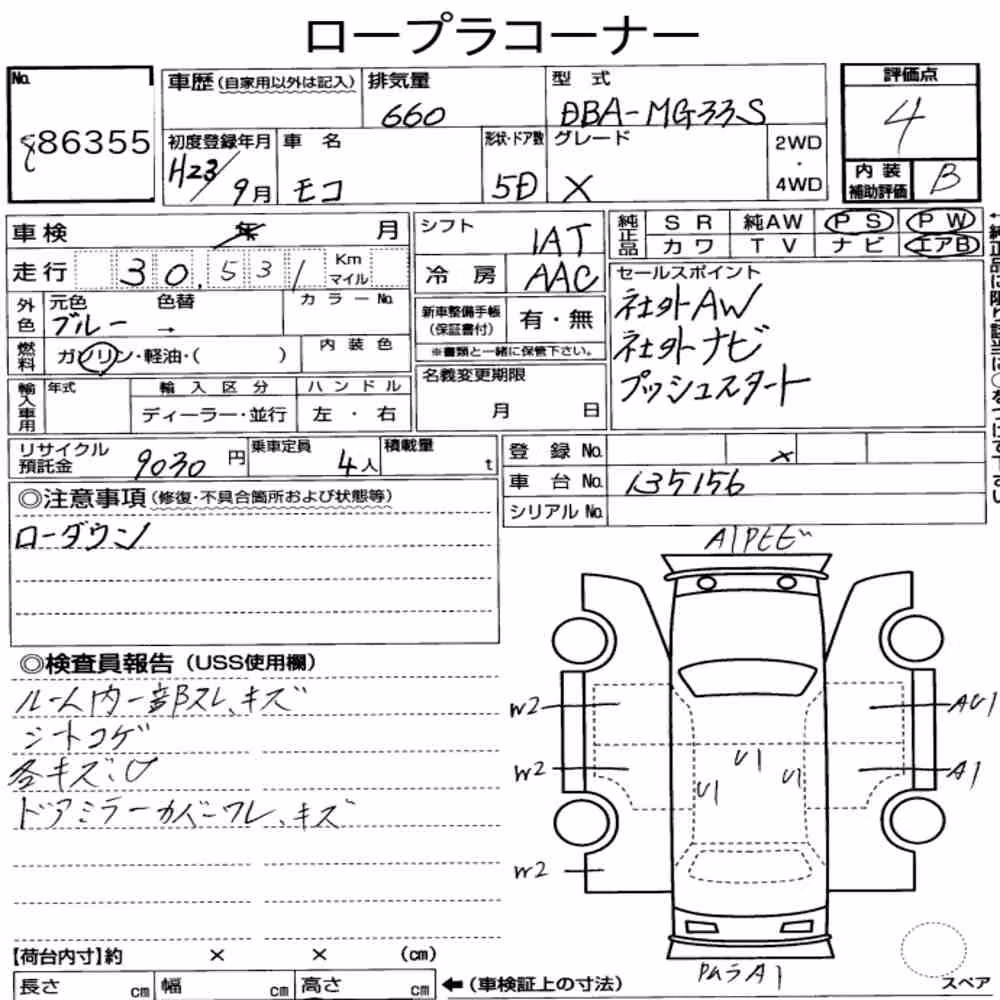 ロープラコーナー
No. 886355
車歴(自家用以外は記入)
排気量 660
型式 DBA-MG33S
評価点 4
初度登録年月 H23/9月
車名 モコ
形状・ドア数 5D
グレード X
2WD・4WD
内装補助評価 B
車検 年 月
走行 30,531 Km マイル
外色 元色 ブルー 色替 → カラーNo.
燃料 ガソリン・軽油・( ) 内装色
輸入車用 年式 輸入区分 ハンドル
ディーラー・並行 左・右
シフト IAT
冷房 AAC
新車整備手帳(保証書付) 有・無
※書類と一緒に保管下さい。
名義変更期限
月 日
純正品 SR 純AW PS PW
カワ TV ナビ エアB
セールスポイント
社外AW
社外ナビ
プッシュスタート
←純正品に限り該当に○をつけて下さい
リサイクル預託金 9030円
乗車定員 4人
積載量 t
登録No. ×
車台No. 135156
シリアルNo.
◎注意事項(修復・不具合箇所および状態等)
ローダウン
◎検査員報告(USS使用欄)
ルーム内一部スレ、キズ
シートコゲ
各キズ:U
ドアミラーカバーワレ、キズ
A1Pヒビ
W2
AU1
W2
U1
U1
U1
A1
W2
PハラA1
スペア
【荷台内寸】約 × × (cm)
長さ cm 幅 cm 高さ cm ←(車検証上の寸法)